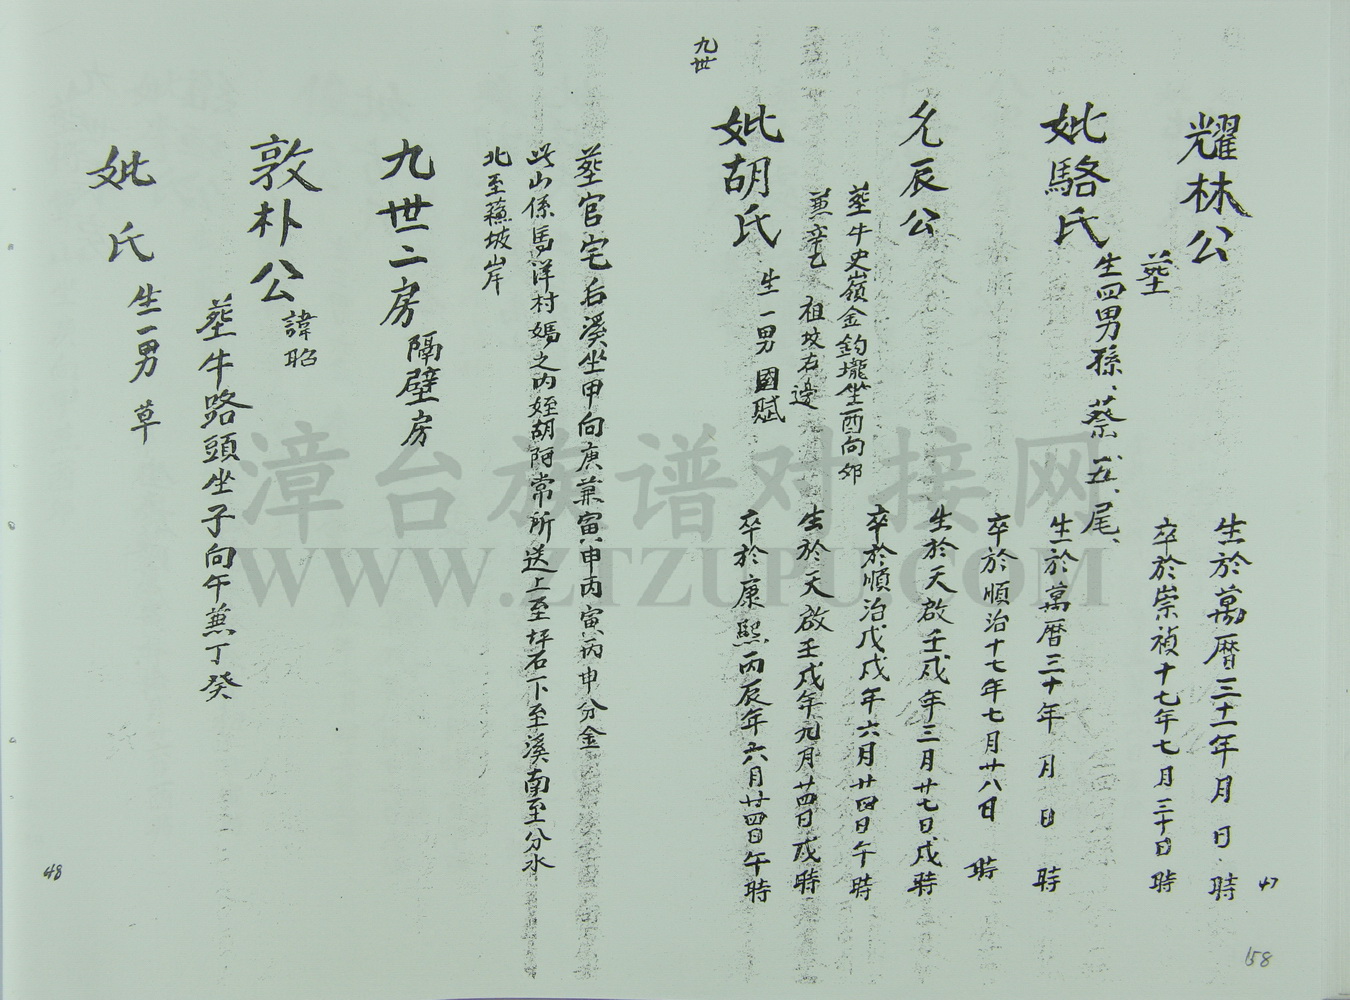 耀林公
葬
生於萬曆三十一年 月 日 時
卒於崇禎十七年七月三十日 時
妣駱氏
生四男孫、蔡、五、尾、
生於萬曆三十年 月 日 時
卒於順治十七年七月廿八日 時
九世
允辰公
葬牛史嶺金鈞壠坐酉向卯
兼辛乙 祖坟右邊
生於天啟壬戌年三月廿七日戌時
卒於順治戊戌年六月廿四日午時
妣胡氏
生一男國賦
生於天啟壬戌年九月廿四日戌時
卒於康熙丙辰年六月廿四日午時
葬官宅后溪坐甲向庚兼寅申丙寅丙申分金
此山係馬洋村媽之内姪胡阿常所送上至坪石下至溪南至分水
北至蘓坡岸
九世二房 隔壁房
敦朴公 諱昭
葬牛路頭坐子向午兼丁癸
妣 氏 生一男 草
47
48
158
漳台族谱对接网
WWW.ZTZUPU.COM